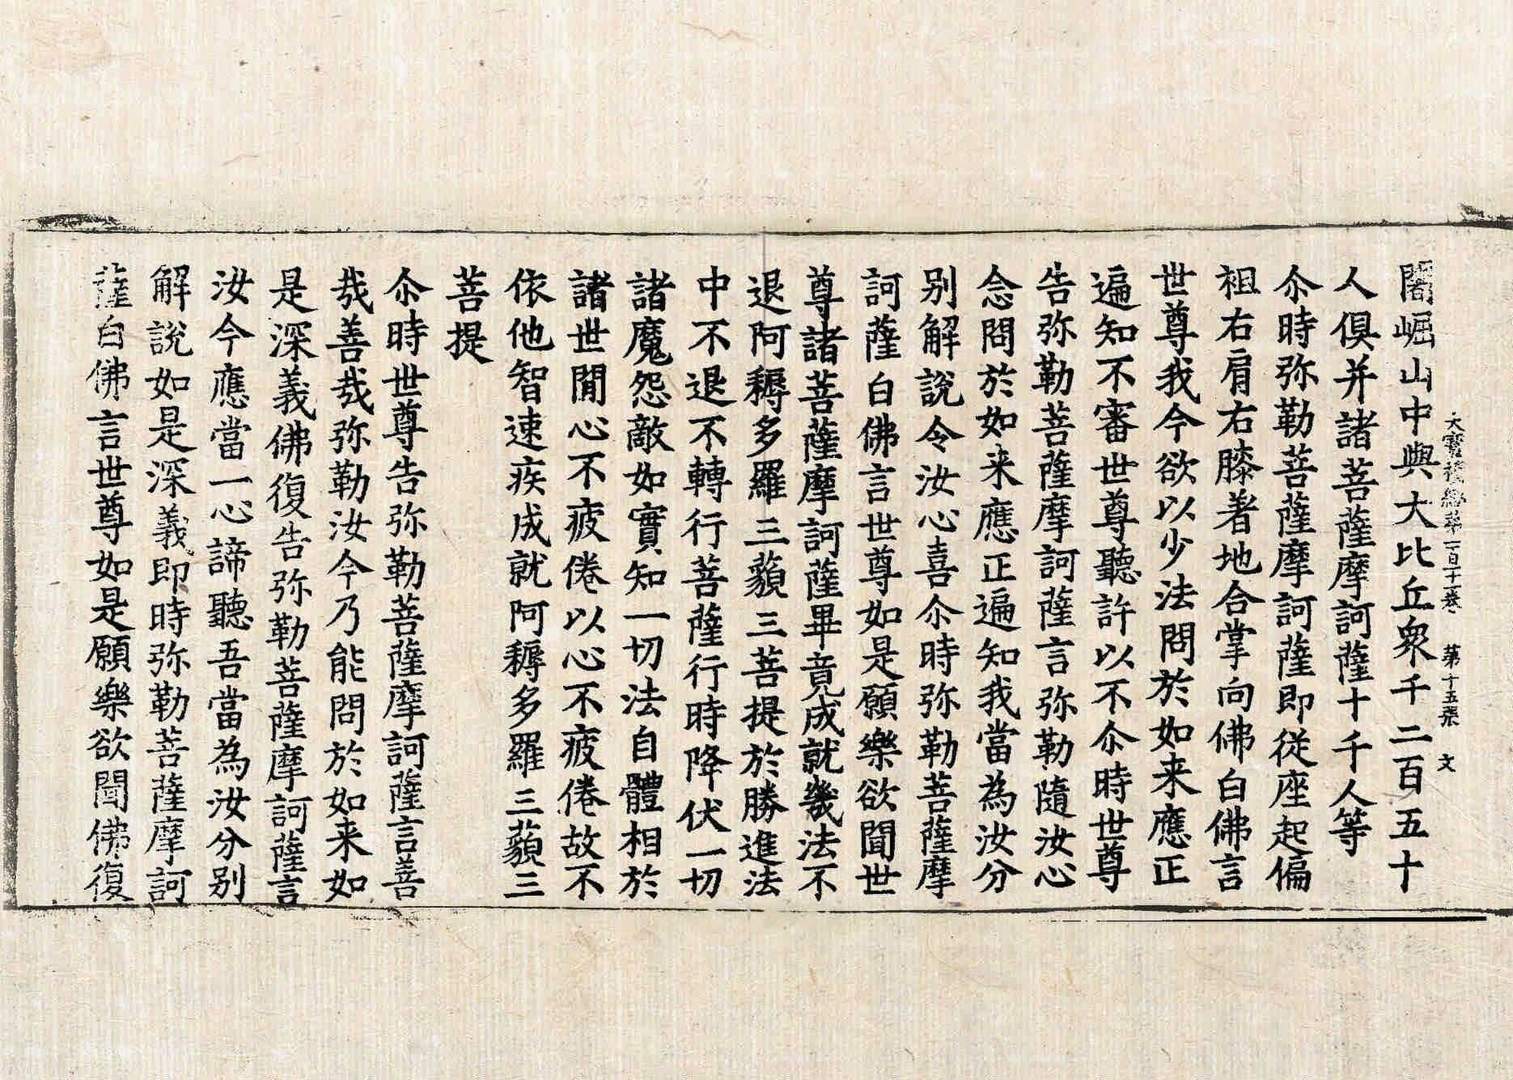 大寶積經第一百十一卷 第十五張 文
闍崛山中與大比丘衆千二百五十
人俱并諸菩薩摩訶薩十千人等
尒時弥勒菩薩摩訶薩即從座起偏
袒右肩右膝著地合掌向佛白佛言
世尊我今欲以少法問於如来應正
遍知不審世尊聽許以不尒時世尊
告弥勒菩薩摩訶薩言弥勒隨汝心
念問於如来應正遍知我當為汝分
别解說令汝心喜尒時弥勒菩薩摩
訶薩白佛言世尊如是願樂欲聞世
尊諸菩薩摩訶薩畢竟成就幾法不
退阿耨多羅三藐三菩提於勝進法
中不退不轉行菩薩行時降伏一切
諸魔怨敵如實知一切法自體相於
諸世間心不疲倦以心不疲倦故不
依他智速疾成就阿耨多羅三藐三
菩提
尒時世尊告弥勒菩薩摩訶薩言善
哉善哉弥勒汝今乃能問於如来如
是深義佛復告弥勒菩薩摩訶薩言
汝今應當一心諦聽吾當為汝分别
解說如是深義即時弥勒菩薩摩訶
薩白佛言世尊如是願樂欲聞佛復